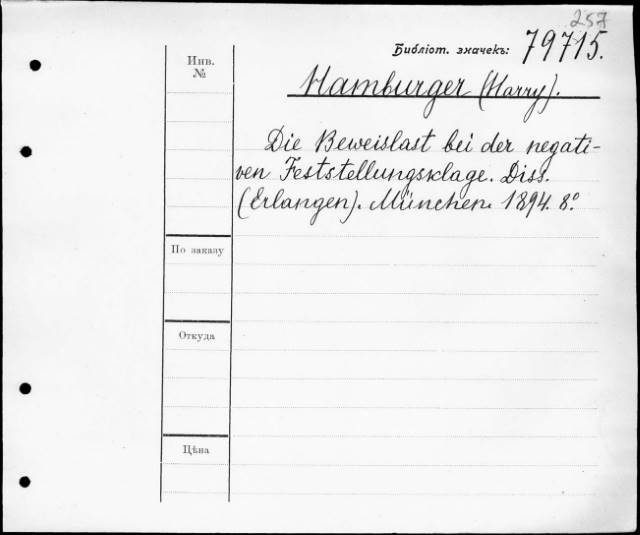 257
Библіот. значекъ: 79715.
Инв.
№
Hamburger (Harry).
Die Beweislast bei der negati-
ven Feststellungsklage. Diss.
(Erlangen). München. 1894. 8.°
По заказу
Откуда
Цѣна